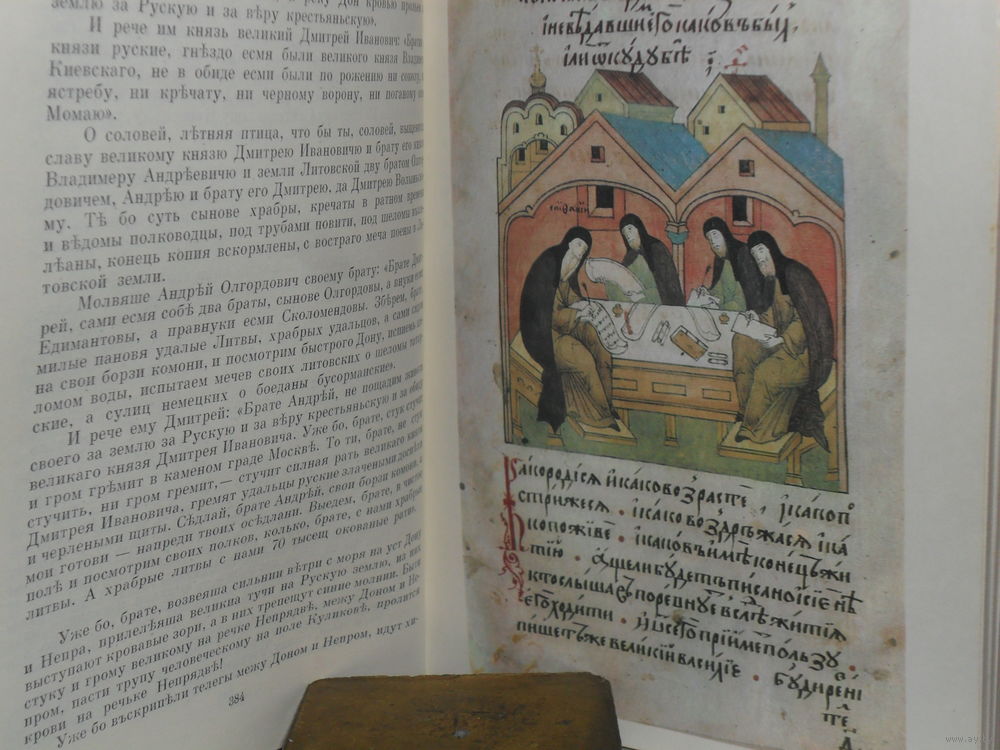 землю за Рускую и за вѣру крестьяньскую».
И рече им князь великий Дмитрей Иванович: «Братия
князи руские, гнѣздо есмя были великого князя Владимера
Киевскаго, не в обиде есми были по рожению ни соколу, ни
ястребу, ни крѣчату, ни черному ворону, ни поганому
Момаю».
О соловей, лѣтняя птица, что бы ты, соловей,
славу великому князю Дмитрею Ивановичю и брату его князю
Владимеру Андрѣевичю и земли Литовской дву братом
довичем, Андрѣю и брату его Дмитрею, да Дмитрею
му. Тѣ бо суть сынове храбры, кречаты в ратном времени
и вѣдомы полководцы, под трубами повити, под шеломы
лѣаны, конець копия вскормлены, с востраго меча поены в
товской земли.
Молвяше Андрѣй Олгордович своему брату: «Брате
рей, сами есмя собѣ два браты, сынове Олгордовы, а внуки
Едимантовы, а правнуки есми Сколомендовы. Збѣрем,
милые пановя удалые Литвы, храбрых удальцов, а сами
на свои борзи комони, и посмотрим быстрого Дону, испием
ломом воды, испытаем мечев своих литовских о шеломы
ские, а сулиц немецких о боеданы бусорманские».
И рече ему Дмитрей: «Брате Андрѣй, не пощадим
своего за землю за Рускую и за вѣру крестьяньскую и за обиду
великаго князя Дмитрея Ивановича. Уже бо, брате, стук стучит
и гром грѣмит в каменом граде Москвѣ. То ти, брате, не стук
стучить, ни гром гремит,— стучит силная рать великаго князя
Дмитрея Ивановича, гремят удальцы руские злачеными доспѣхи
и черлеными щиты. Сѣдлай, брате Андрѣй, свои борзи комони, а
мои готови — напреди твоих осѣдлани. Выедем, брате, в чистое
полѣ и посмотрим своих полков, колько, брате, с нами храбрые
литвы. А храбрые литвы с нами 70 тысещ окованые рати».
Уже бо, брате, возвеяша сильнии вѣтри с моря на уст Дону
и Непра, прилелѣяша великиа тучи на Рускую землю, из них
выступают кровавые зори, а в них трепещут синие молнии. Быти
стуку и грому великому на речке Непрядвѣ, межу Доном и Не-
пром, пасти трупу человеческому на поле Куликовѣ, пролится
крови на речьке Непрядвѣ!
Уже бо въскрипѣли телегы межу Доном и Непром, идут хи-
384
і невѣдавшиегѡ каковъ бы,
їли ѿкꙋдꙋ бѣ
Какородісѧ и каково зрастѣ, їкако пѡ
стрижесѧ. їкаково здръжаєсѧ їка
кѡ поживѣ. їкаковъ имѣ конець жи
тїю. аще ли бꙋдеть писаноїсїе нѣ
пишеть же великїи василїе. бꙋди рені
www.ay.by